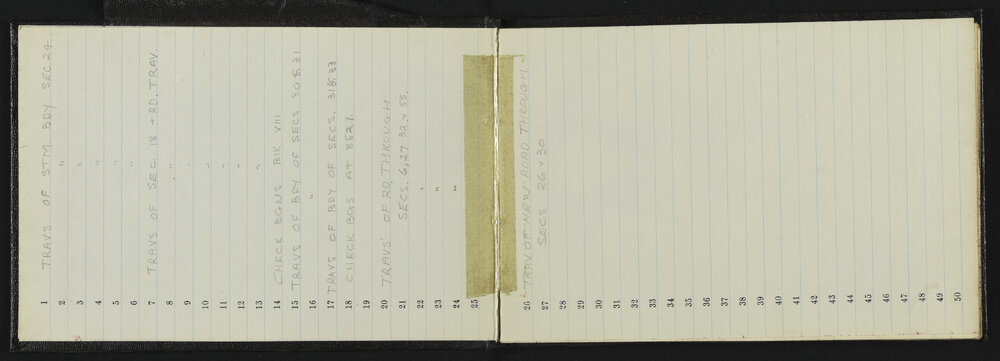 1 TRAVS OF STM BDY SEC 24
2 "
3 "
4 "
5 "
6 "
7 TRAVS OF SEC 18 + RD. TRAV.
8 "
9 "
10 "
11 "
12 "
13 "
14 CHECK BGNS BLK VIII
15 TRAVS OF BDY OF SECS 30 & 31
16 "
17 TRAVS OF BDY OF SECS. 31 & 33
18 CHECK BGS AT
19
20 TRAVS' OF RD. THROUGH
21 SECS. 6, 27 32 + 55.
22 "
23 "
24 "
25
26 TRAV OF NEW ROAD THROUGH
27 SECS 26 + 30
28
29
30
31
32
33
34
35
36
37
38
39
40
41
42
43
44
45
46
47
48
49
50